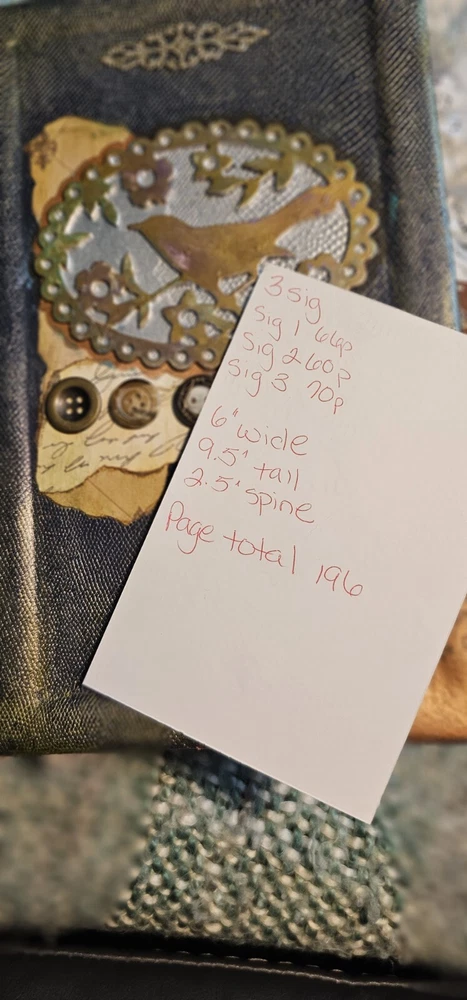 3 sig
Sig 1 66p
Sig 2 60p
Sig 3 70p
6" wide
9.5" tall
2.5" spine
Page total 196